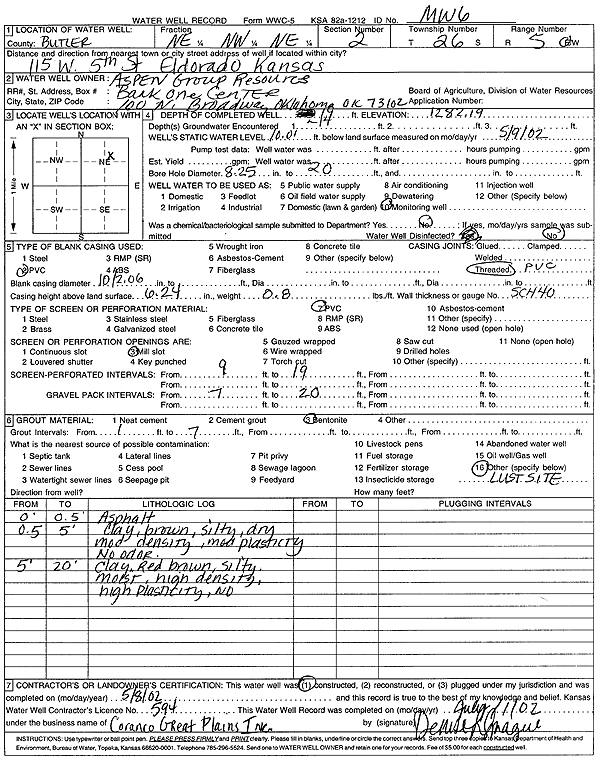 WATER WELL RECORD Form WWC-5 KSA 82a-1212 ID No. MW6
1 LOCATION OF WATER WELL: Fraction Section Number Township Number Range Number
County: BUTLER NE ¼ NW ¼ NE ¼ 2 T 26 S R 5 E/W
Distance and direction from nearest town or city street address of well if located within city?
115 W. 5th St Eldorado Kansas
2 WATER WELL OWNER: Aspen Group Resources
RR#, St. Address, Box # : Bank One Center Board of Agriculture, Division of Water Resources
City, State, ZIP Code : 100 N. Broadway, Oklahoma OK 73102 Application Number:
3 LOCATE WELL'S LOCATION WITH AN "X" IN SECTION BOX:
N
NW NE X
W E
SW SE
S
1 Mile
4 DEPTH OF COMPLETED WELL 19 ft. ELEVATION: 1282.19
Depth(s) Groundwater Encountered 1. 14 ft. 2. ft. 3. ft.
WELL'S STATIC WATER LEVEL 10.01 ft. below land surface measured on mo/day/yr 5/9/02
Pump test data: Well water was ft. after hours pumping gpm
Est. Yield gpm: Well water was ft. after hours pumping gpm
Bore Hole Diameter 8.25 in. to 20 ft., and in. to ft.
WELL WATER TO BE USED AS: 5 Public water supply 8 Air conditioning 11 Injection well
1 Domestic 3 Feedlot 6 Oil field water supply 9 Dewatering 12 Other (Specify below)
2 Irrigation 4 Industrial 7 Domestic (lawn & garden) 10 Monitoring well
Was a chemical/bacteriological sample submitted to Department? Yes No ; If yes, mo/day/yrs sample was sub-
mitted Water Well Disinfected? Yes No
5 TYPE OF BLANK CASING USED: 5 Wrought iron 8 Concrete tile CASING JOINTS: Glued Clamped
1 Steel 3 RMP (SR) 6 Asbestos-Cement 9 Other (specify below) Welded
2 PVC 4 ABS 7 Fiberglass Threaded. PVC
Blank casing diameter 10/2.06 in. to ft., Dia in. to ft., Dia in. to ft.
Casing height above land surface 6.24 in., weight 0.8 lbs./ft. Wall thickness or gauge No. SCH40
TYPE OF SCREEN OR PERFORATION MATERIAL: 7 PVC 10 Asbestos-cement
1 Steel 3 Stainless steel 5 Fiberglass 8 RMP (SR) 11 Other (specify)
2 Brass 4 Galvanized steel 6 Concrete tile 9 ABS 12 None used (open hole)
SCREEN OR PERFORATION OPENINGS ARE: 5 Gauzed wrapped 8 Saw cut 11 None (open hole)
1 Continuous slot 3 Mill slot 6 Wire wrapped 9 Drilled holes
2 Louvered shutter 4 Key punched 7 Torch cut 10 Other (specify) ft.
SCREEN-PERFORATED INTERVALS: From 9 ft. to 19 ft., From ft. to ft.
From ft. to ft., From ft. to ft.
GRAVEL PACK INTERVALS: From 7 ft. to 20 ft., From ft. to ft.
From ft. to ft., From ft. to ft.
6 GROUT MATERIAL: 1 Neat cement 2 Cement grout 3 Bentonite 4 Other
Grout Intervals: From 1 ft. to 7 ft., From ft. to ft., From ft. to ft.
What is the nearest source of possible contamination: 10 Livestock pens 14 Abandoned water well
1 Septic tank 4 Lateral lines 7 Pit privy 11 Fuel storage 15 Oil well/Gas well
2 Sewer lines 5 Cess pool 8 Sewage lagoon 12 Fertilizer storage 16 Other (specify below)
3 Watertight sewer lines 6 Seepage pit 9 Feedyard 13 Insecticide storage LUST SITE
Direction from well? How many feet?
FROM TO LITHOLOGIC LOG FROM TO PLUGGING INTERVALS
0' 0.5' Asphalt
0.5 5' Clay, brown, silty, dry
mod density, mod plasticity
No odor.
5' 20' Clay, Red brown, silty,
moist, high density,
high plasticity, NO
7 CONTRACTOR'S OR LANDOWNER'S CERTIFICATION: This water well was (1) constructed, (2) reconstructed, or (3) plugged under my jurisdiction and was
completed on (mo/day/year) 5/8/02 and this record is true to the best of my knowledge and belief. Kansas
Water Well Contractor's Licence No. 594 This Water Well Record was completed on (mo/day/yr) July 1/02
under the business name of Coranco Great Plains Inc. by (signature) Denise Sprague
INSTRUCTIONS: Use typewriter or ball point pen. PLEASE PRESS FIRMLY and PRINT clearly. Please fill in blanks, underline or circle the correct answers. Send top three copies to Kansas Department of Health and
Environment, Bureau of Water, Topeka, Kansas 66620-0001. Telephone 785-296-5524. Send one to WATER WELL OWNER and retain one for your records. Fee of $5.00 for each constructed well.